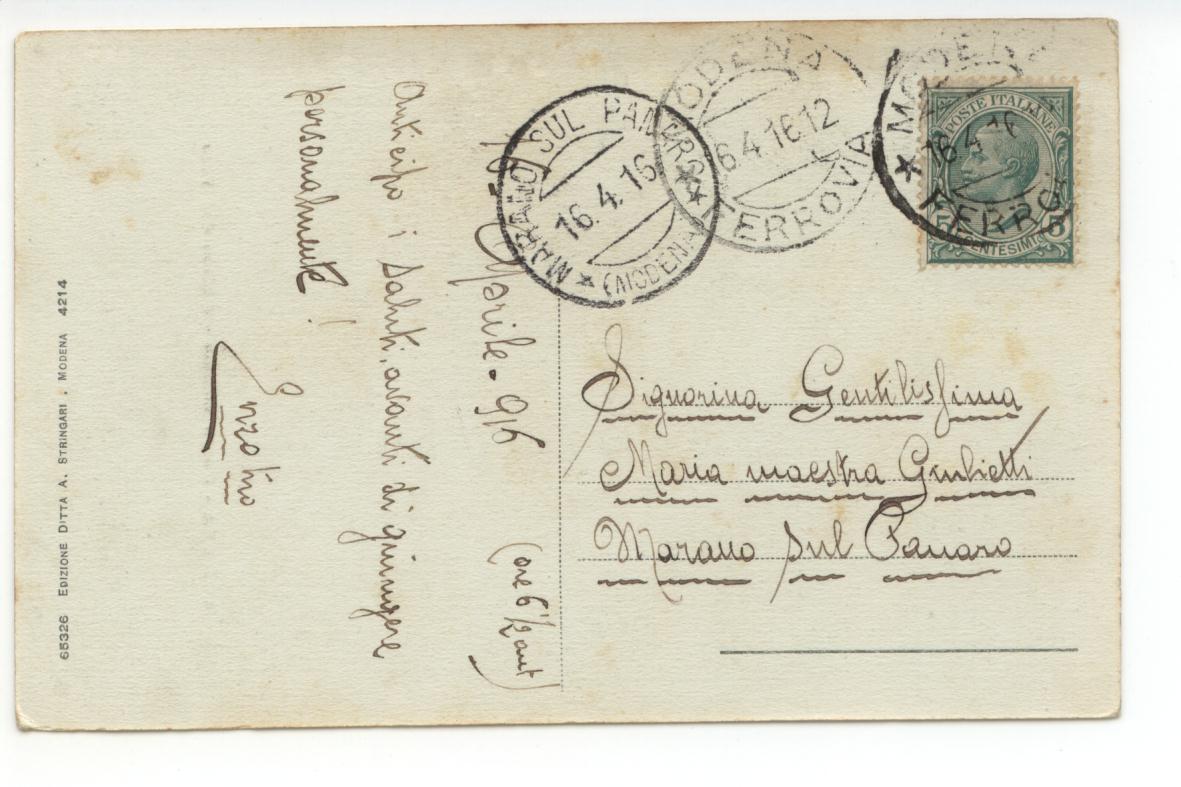 Aprile. 916
(ore 6 1/2 ant)
Anticipo i saluti, avanti di giungere
personalmente!
Enzo tuo
65326 EDIZIONE DITTA A. STRINGARI . MODENA 4214
MARANO SUL PANARO
16.4.16
(MODENA)
MODENA
16.4.16.12
FERROVIA
MODENA
16 4 16
FERRO
POSTE ITALIANE
5 CENTESIMI 5
Signorina Gentilissima
Maria maestra Giulietti
Marano sul Panaro